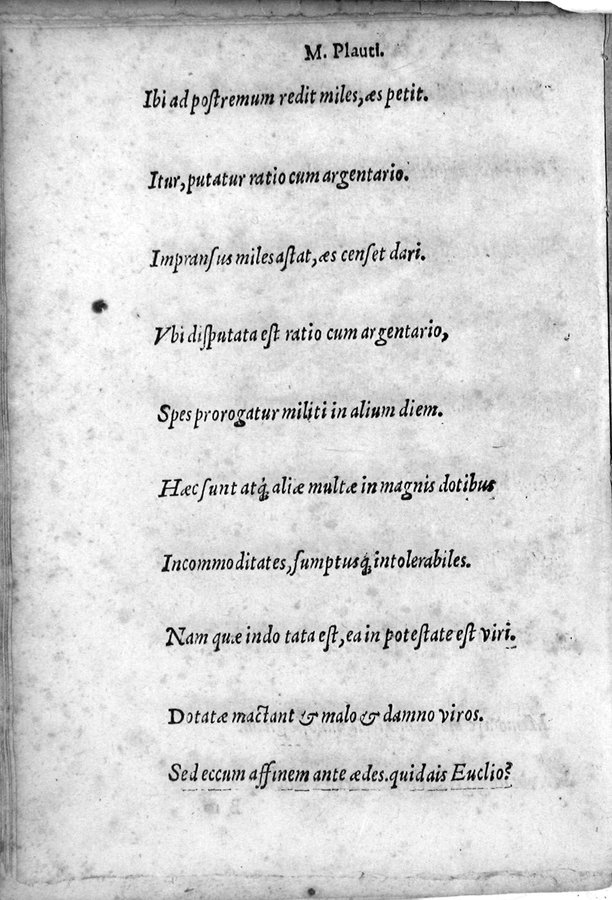 M. Plauti.
Ibi ad poſtremum redit miles, æs petit.
Itur, putatur ratio cum argentario.
Impranſus miles aſtat, æs cenſet dari.
Vbi diſputata eſt ratio cum argentario,
Spes prorogatur militi in alium diem.
Hæc ſunt atq́; aliæ multæ in magnis dotibus
Incommoditates, ſumptusq́; intolerabiles.
Nam quæ indo tata eſt, ea in poteſtate eſt viri.
Dotatæ mactant & malo & damno viros.
Sed eccum affinem ante ædes. quid ais Euclio?